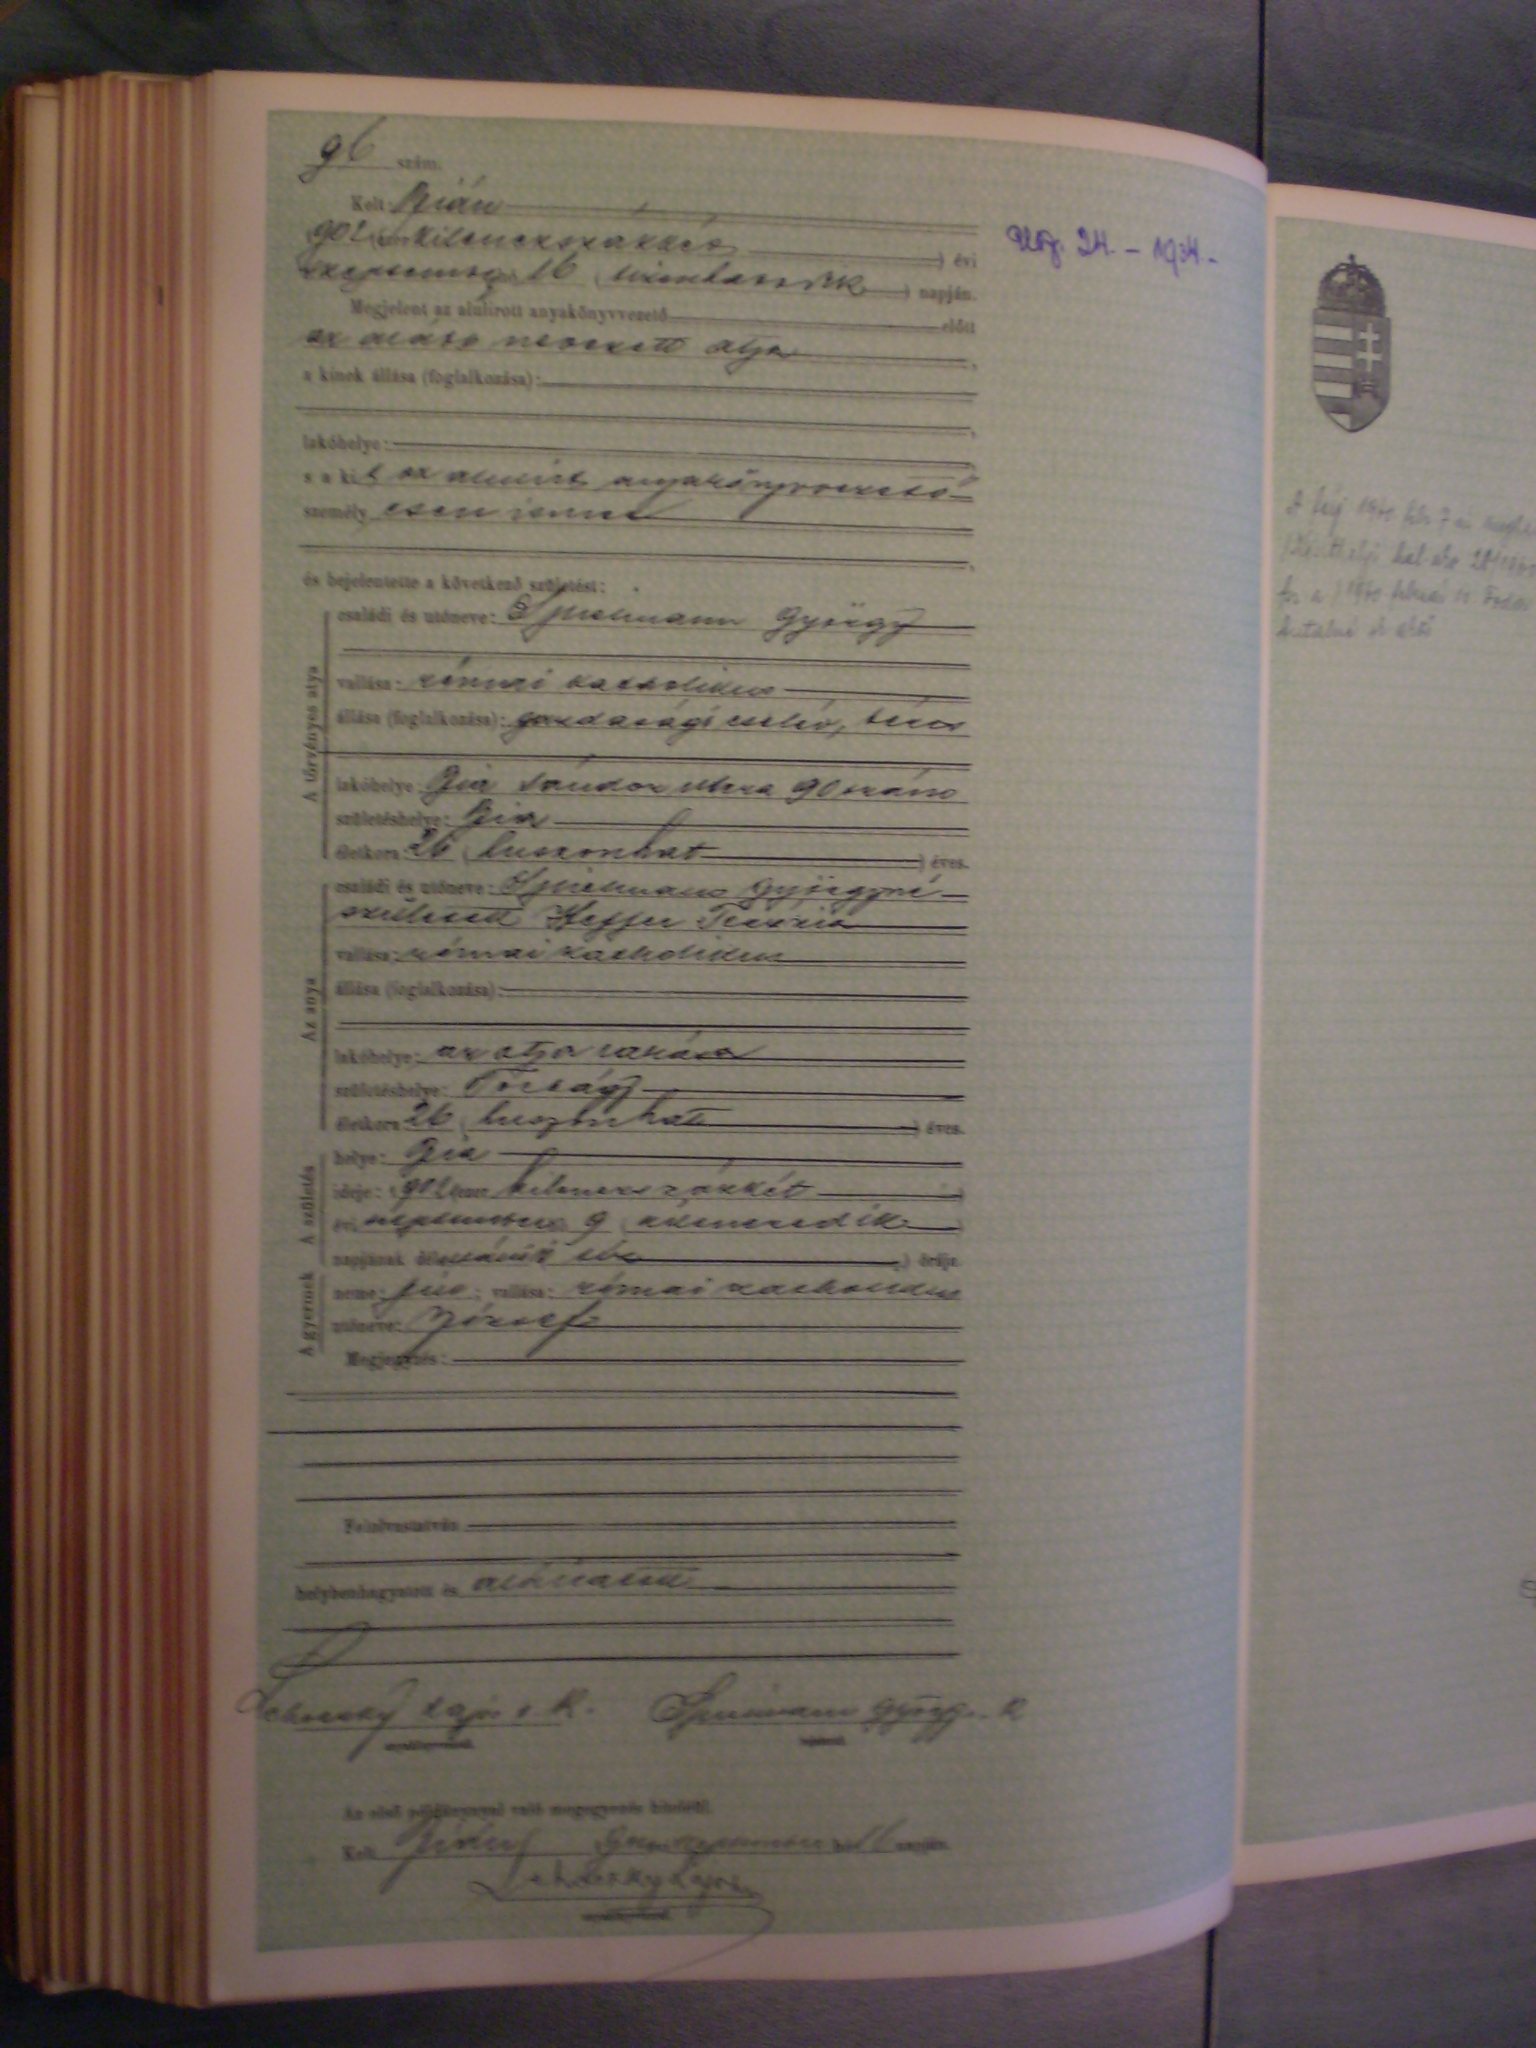 96 szám.
Kelt Bián
902 (ezer kilenczszázkét) évi
szeptember 16 (tizenhatodik) napján.
Megjelent az alulírott anyakönyvvezető előtt
az alább nevezett atya,
a kinek állása (foglalkozása):
lakóhelye:
s a kit az alulírt anyakönyvvezető
személyesen ismer
és bejelentette a következő születést:
A törvényes atya
családi és utóneve: Spielmann György
vallása: római katholikus
állása (foglalkozása): gazdasági cseléd, béres
lakóhelye: Bia Sándor utcza 90 szám
születéshelye: Bia
életkora: 26 (huszonhat) éves.
Az anya
családi és utóneve: Spielmann Györgyné
született Heffer Terézia
vallása: római katholikus
állása (foglalkozása):
lakóhelye: az atya lakása
születéshelye: Torbágy
életkora 26 (huszonhat) éves.
A születés
helye: Bia
ideje: 902 (ezer kilenczszázkét)
évi szeptember 9 (kilenczedik)
napjának délutáni órája.
A gyermek
neme: fiú; vallása: római katholikus
utóneve: József
Megjegyzés:
Felolvastatván
helybenhagyatott és aláíratott
Lajos s. k. Spielmann György s. k.
Az első példánynyal való megegyezés hiteléül.
Kelt Bián, szeptember hó 16 napján.
Lajos
24. - 1934.
A férj 1940 feb 7-én